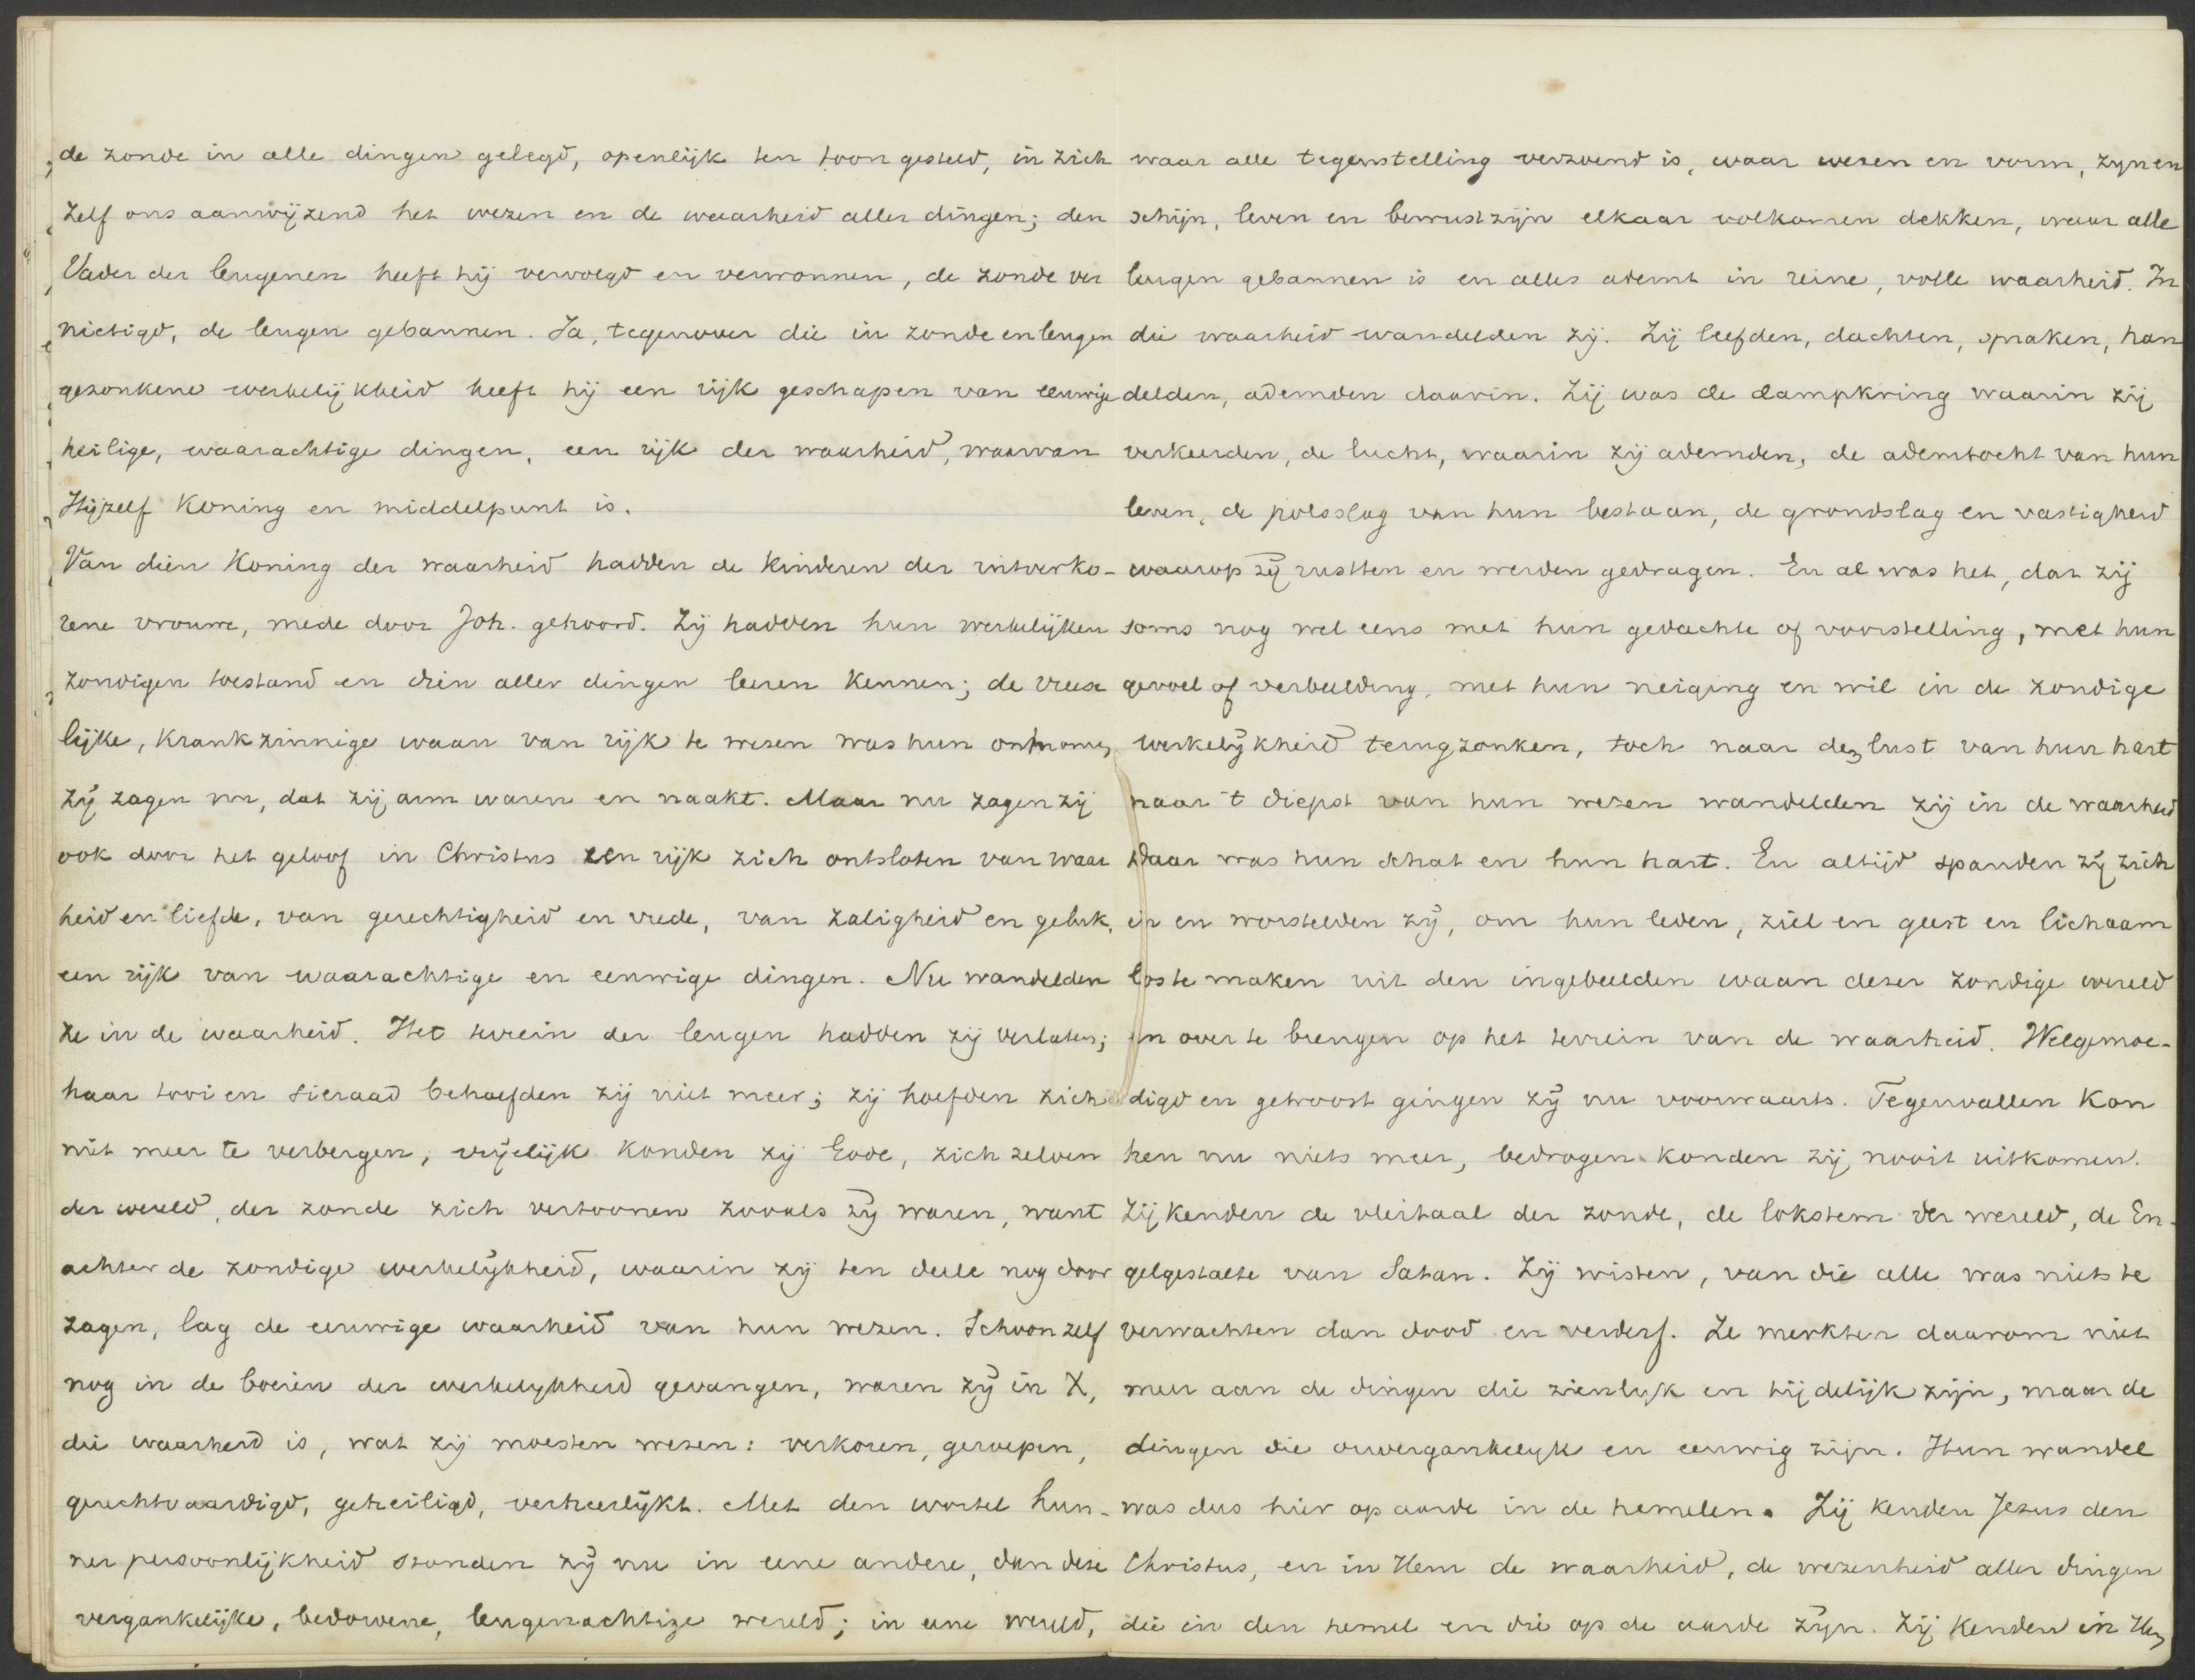 de zonde in alle dingen gelegd, openlijk ten toon gesteld, in zich
zelf ons aanwijzend het wezen en de waarheid aller dingen; den
Vader der leugenen heeft hij vervolgd en verwonnen, de zonde ver
nietigd, de leugen gebannen. Ja, tegenover die in zonde en leugen
gezonkene werkelijkheid heeft hij een rijk geschapen van eeuwige
heilige, waarachtige dingen, een rijk der waarheid, waarvan
Hijzelf Koning en middelpunt is.
Van dien Koning der waarheid hadden de kinderen der uitverko-
rene vrouwe, mede door Joh. gehoord. Zij hadden hun werkelijken
zondigen toestand en dien aller dingen leeren kennen; de vrees
lijke, krankzinnige waan van rijk te wezen was hun ontnomen,
zij zagen nu, dat zij arm waren en naakt. Maar nu zagen zij
ook door het geloof in Christus een rijk zich ontsloten van waar
heid en liefde, van gerechtigheid en vrede, van zaligheid en geluk,
een rijk van waarachtige en eeuwige dingen. Nu wandelden
ze in de waarheid. Het terrein der leugen hadden zij verlaten;
haar tooi en sieraad behoefden zij niet meer; zij hoefden zich
niet meer te verbergen, vrijelijk konden zij Gode, zich zelven
der wereld, der zonde zich vertoonen zooals zij waren, want
achter de zondige werkelijkheid, waarin zij ten deele nog door
zagen, lag de eeuwige waarheid van hun wezen. Schoon zelf
nog in de boeien der werkelijkheid gevangen, waren zij in X,
die waarheid is, wat zij moesten wezen: verkoren, geroepen,
gerechtvaardigd, geheiligd, verheerlijkt. Met den wortel hun-
ner persoonlijkheid stonden zij nu in eene andere, dan deze
vergankelijke, bedorvene, leugenachtige wereld; in eene wereld,
waar alle tegenstelling verzoend is, waar wezen en vorm, zijn en
schijn, leven en bewustzijn elkaar volkomen dekken, waar alle
leugen gebannen is en alles ademt in reine, volle waarheid. In
die waarheid wandelden zij. Zij leefden, dachten, spraken, han
delden, ademden daarin. Zij was de dampkring waarin zij
verkeerden, de lucht, waarin zij ademden, de ademtocht van hun
leven, de polsslag van hun bestaan, de grondslag en vastigheid
waarop zij rustten en werden gedragen. En al was het, dat zij
soms nog wel eens met hun gedachte of voorstelling, met hun
gevoel of verbeelding, met hun neiging en wil in de zondige
werkelijkheid terugzonken, toch naar den lust van hun hart
naar 't diepst van hun wezen wandelden zij in de waarheid
Daar was hun schat en hun hart. En altijd spanden zij zich
in en worstelden zij, om hun leven, ziel en geest en lichaam
los te maken uit den ingebeelden waan dezer zondige wereld
en over te brengen op het terrein van de waarheid. Welgemoe-
digd en getroost gingen zij nu voorwaarts. Tegenvallen kon
hen nu niets meer, bedrogen konden zij nooit uitkomen.
Zij kenden de vleitaal der zonde, de lokstem der wereld, de En-
gelgestalte van Satan. Zij wisten, van die alle was niets te
verwachten dan dood en verderf. Ze merkten daarom niet
meer aan de dingen die zienlijk en tijdelijk zijn, maar de
dingen die onvergankelijk en eeuwig zijn. Hun wandel
was dus hier op aarde in de hemelen. Zij kenden Jezus den
Christus, en in Hem de waarheid, de wezenheid aller dingen
die in den hemel en die op de aarde zijn. Zij kenden in Hem